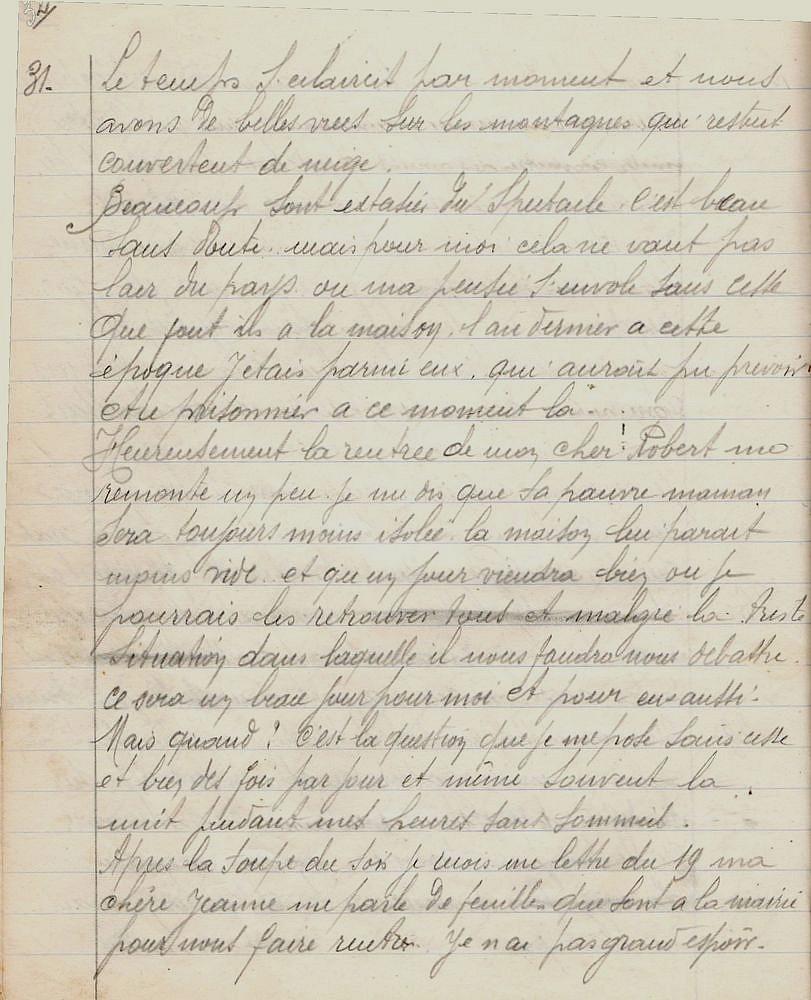 31. Le temps s'eclaircit par moment et nous
avons de belles vues sur les montagnes qui restent
couvertent de neige.
Beaucoup sont extasiés du spectacle. C'est beau
sans doute. mais pour moi cela ne vaut pas
l'air du pays ou ma pensée s'envole sans cesse
Que font ils a la maison, l'an dernier a cette
époque J'etais parmi eux. qui aurait pu prevoir
etre prisonnier a ce moment la
Heureusement la rentree de mon cher Robert me
remonte un peu. je me dis que sa pauvre maman
sera toujours moins isolée la maison lui parait
moins vide. et qu'un jour viendra bien ou je
pourrais les retrouver tous et malgré la triste
situation dans laquelle il nous faudra nous debattre.
ce sera un beau jour pour moi et pour eux aussi.
Mais quand? C'est la question que je me pose sans cesse
et bien des fois par jour et même souvent la
nuit pendant mes heures sans sommeil.
Apres la soupe du soir je reçois une lettre du 19 ma
chére Jeanne me parle de feuilles que sont a la mairie
pour nous faire rentrer. Je n'ai pas grand espoir.